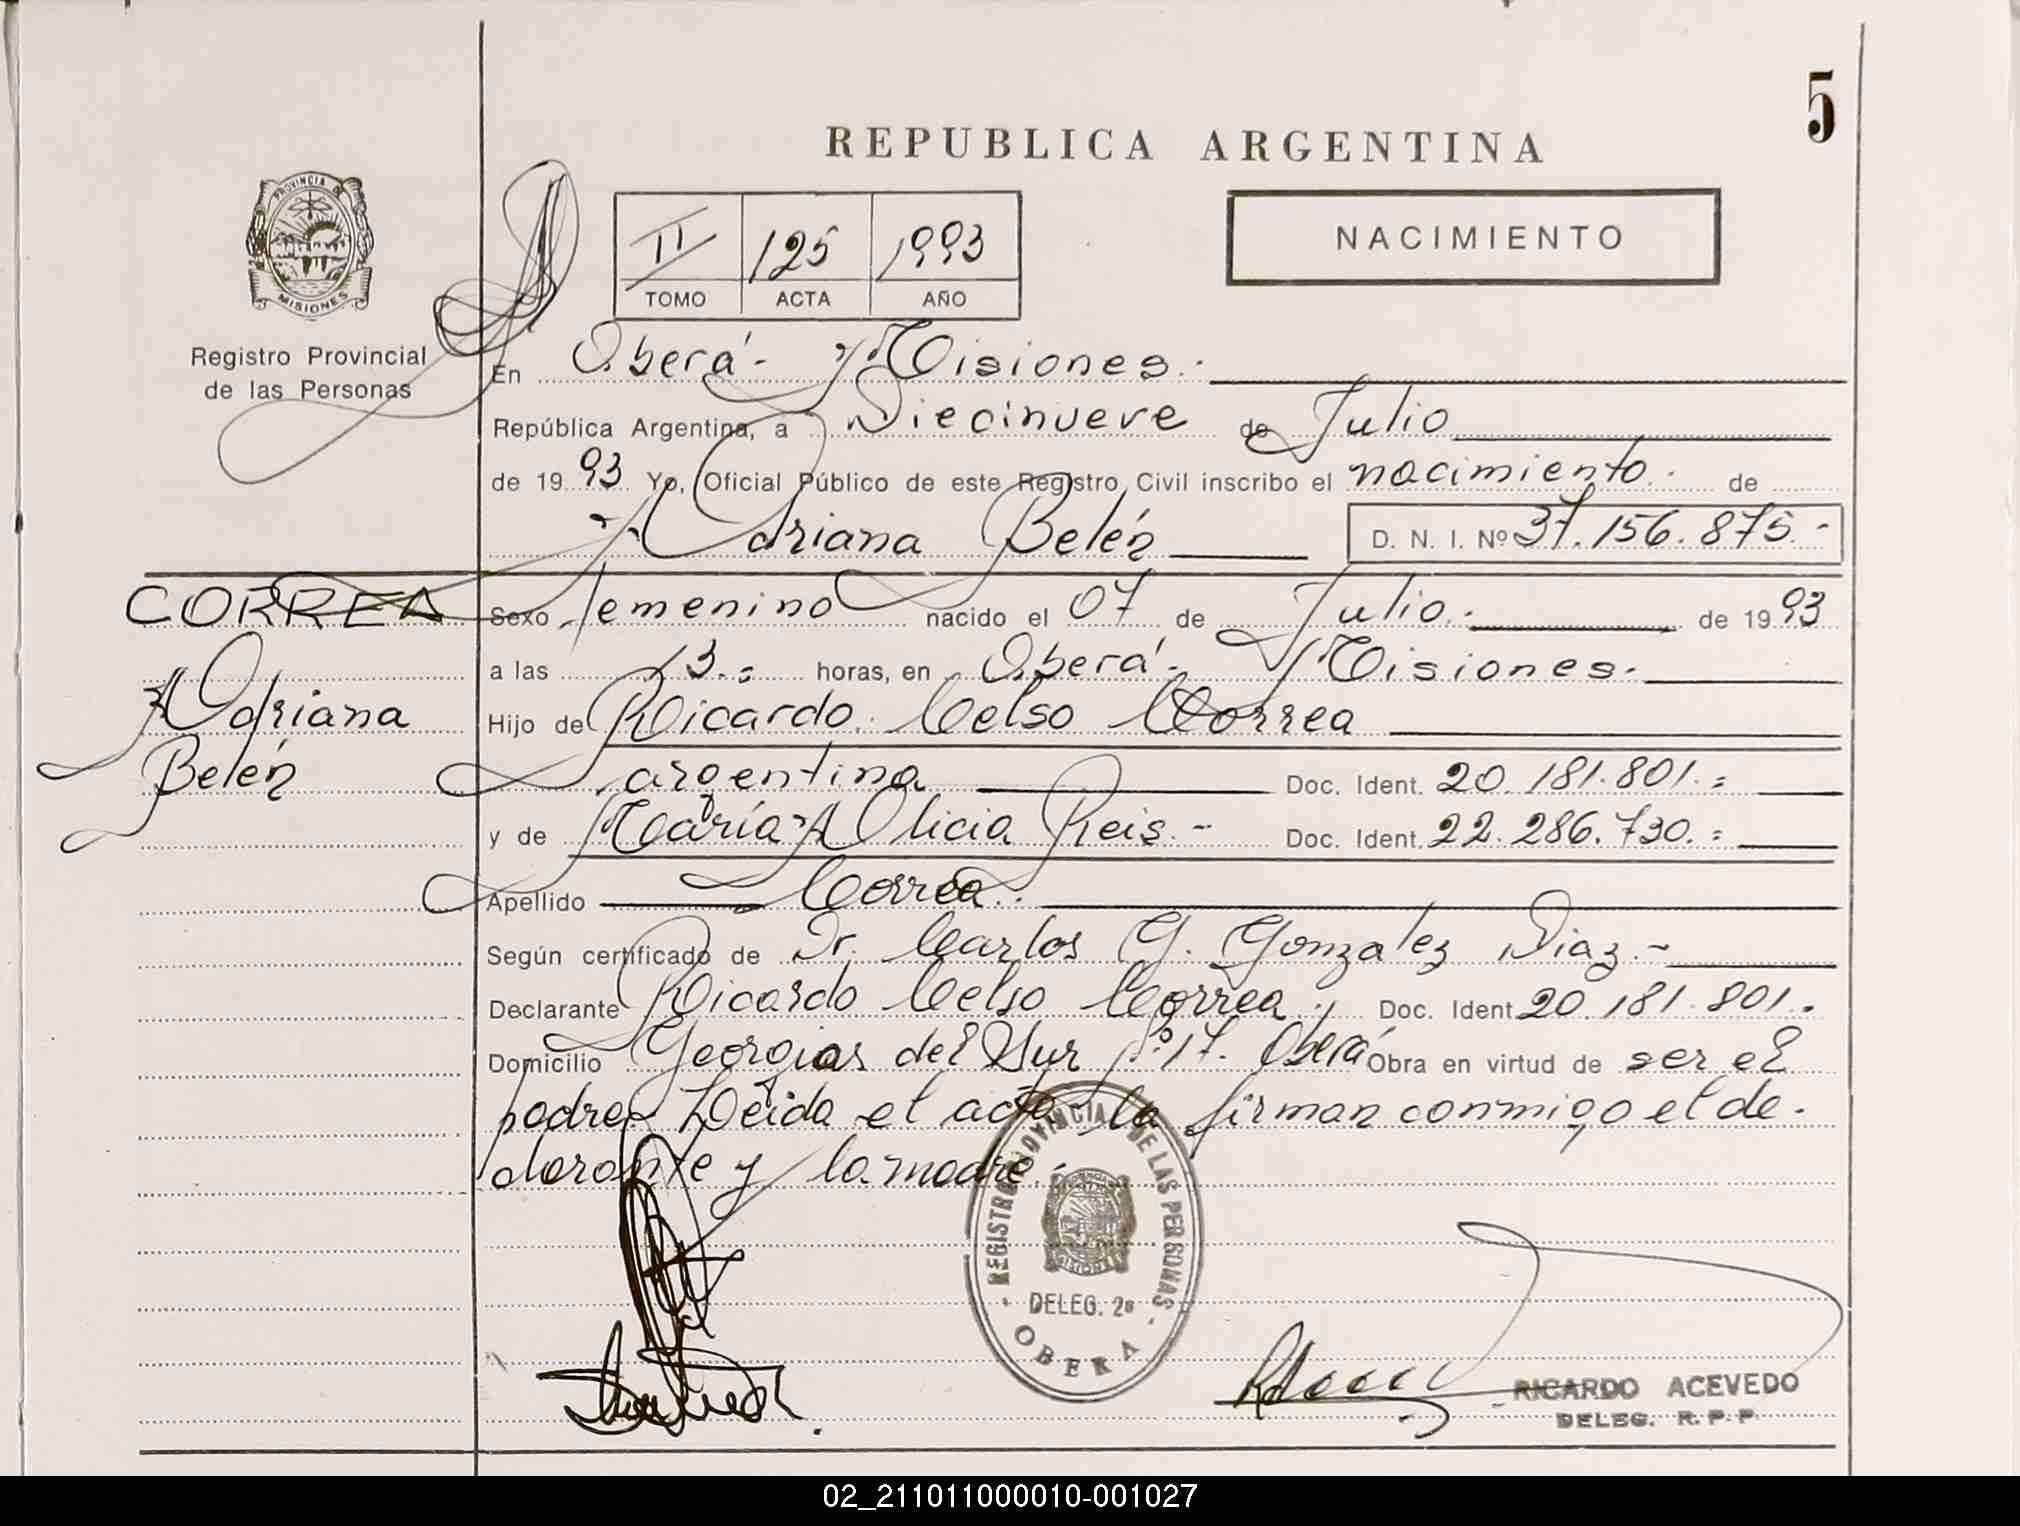 5
REPUBLICA ARGENTINA
PROVINCIA DE
MISIONES
Registro Provincial
de las Personas
II 125 1993
TOMO ACTA AÑO
NACIMIENTO
En Oberá- Misiones.-
República Argentina, a Diecinueve de Julio
de 19 93 Yo, Oficial Público de este Registro Civil inscribo el nacimiento. de
Adriana Belén D. N. I. Nº 37.156.875.-
CORREA
Adriana
Belén
Sexo femenino nacido el 07 de Julio.- de 19 93
a las 13.= horas, en Oberá- Misiones.-
Hijo de Ricardo Celso Correa
argentina Doc. Ident. 20.181.801.=
y de María Alicia Reis.- Doc. Ident. 22.286.730.=
Apellido Correa.-
Según certificado de Dr. Carlos G. Gonzalez Diaz.-
Declarante Ricardo Celso Correa. Doc. Ident 20.181.801.
Domicilio Georgias del Sur 17. Oberá Obra en virtud de ser el
padre- Leída el acta la firman conmigo el de-
clarante y la madre.-
REGISTRO PROVINCIAL DE LAS PERSONAS
MISIONES
DELEG. 2ª
OBERA
RICARDO ACEVEDO
DELEG. R. P. P.
02_211011000010-001027